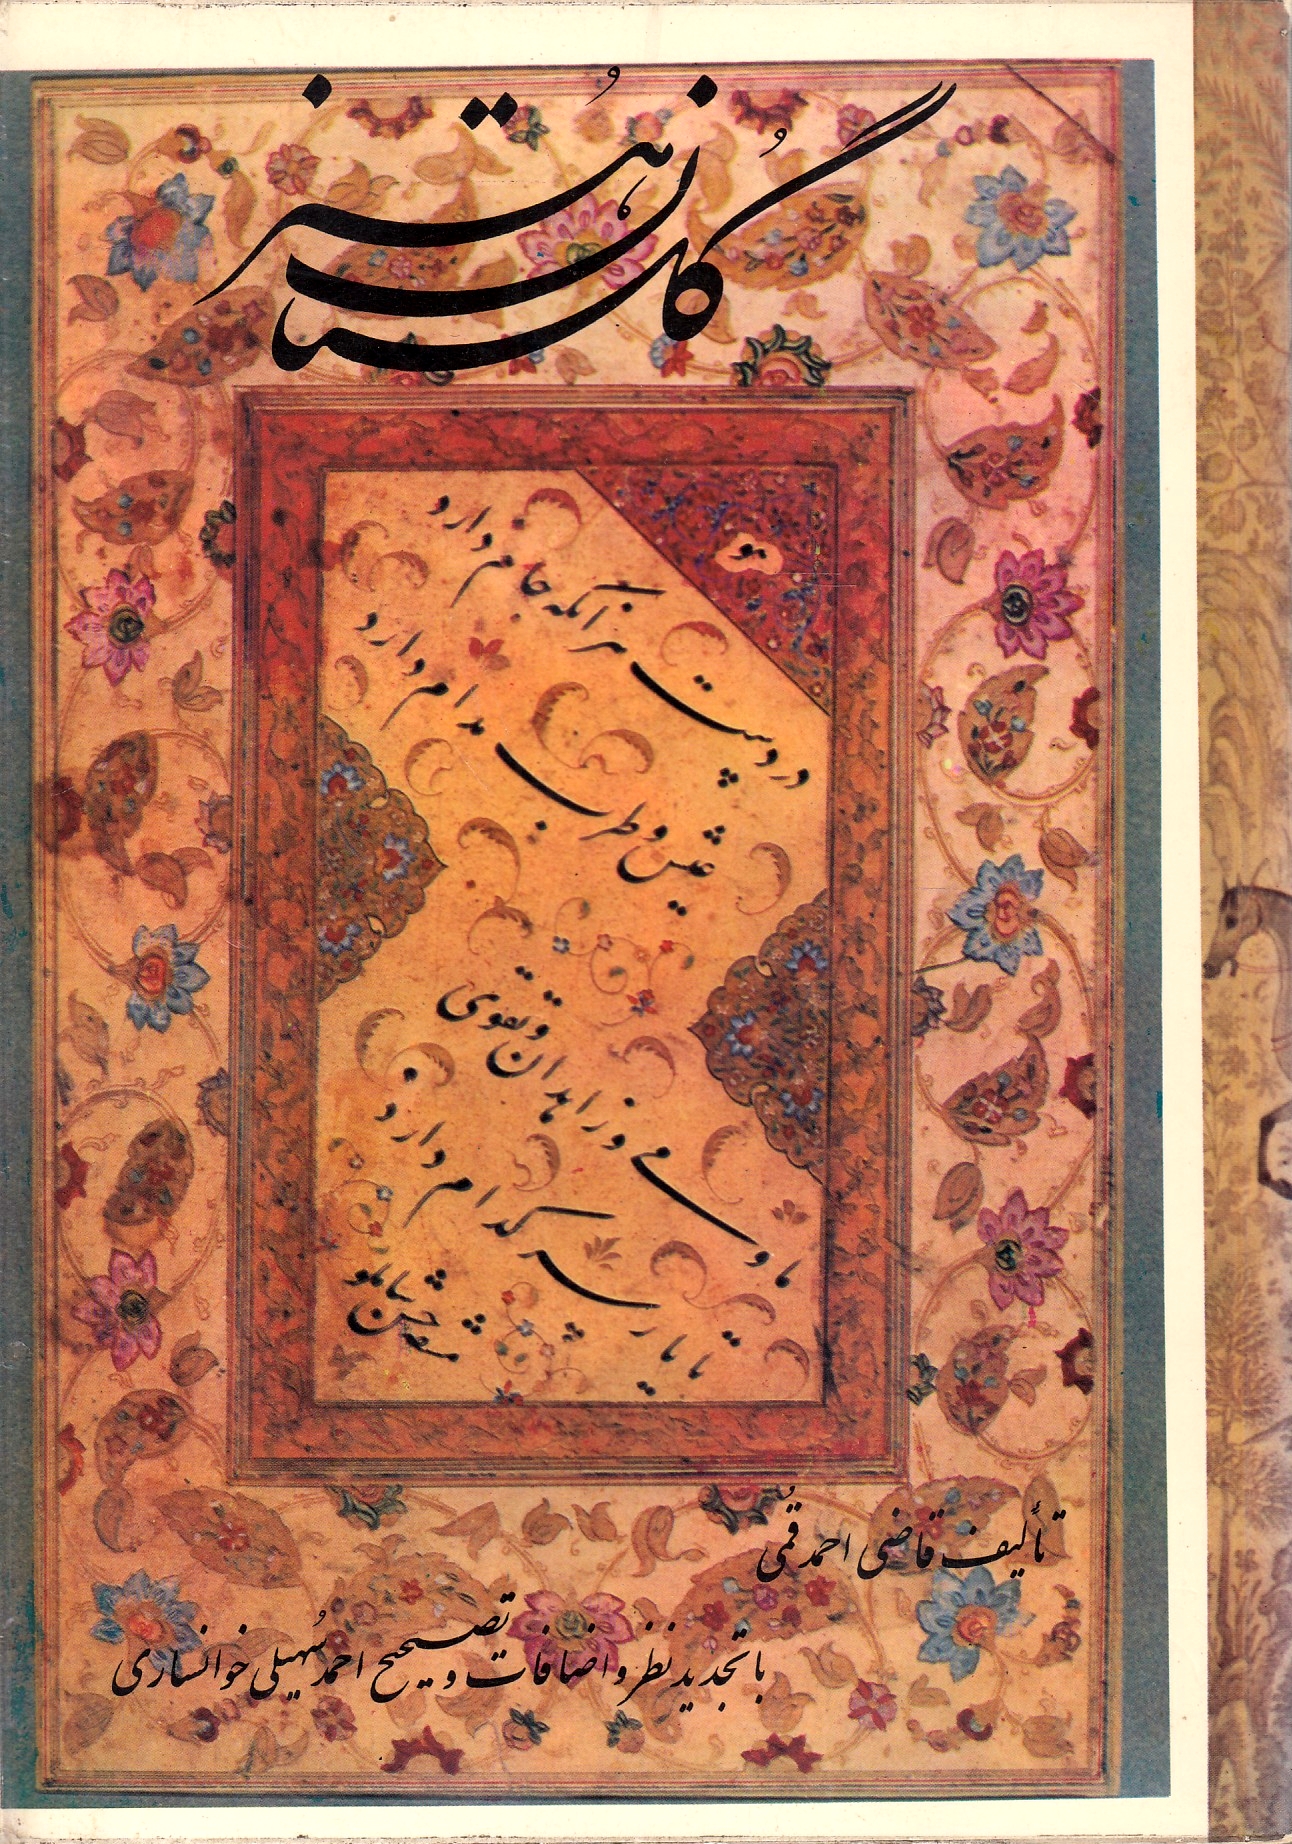 گلستان هُنر
در دست هر آنکه جام دارد
عیش و طرب مدام دارد
ما و می و زاهدان و تقوی
تا یار سر کدام دارد
مشقه حسن شاملو
تألیف قاضی احمد قُمی
با تجدید نظر و اضافات و تصحیح احمد سُهیلی خوانساری